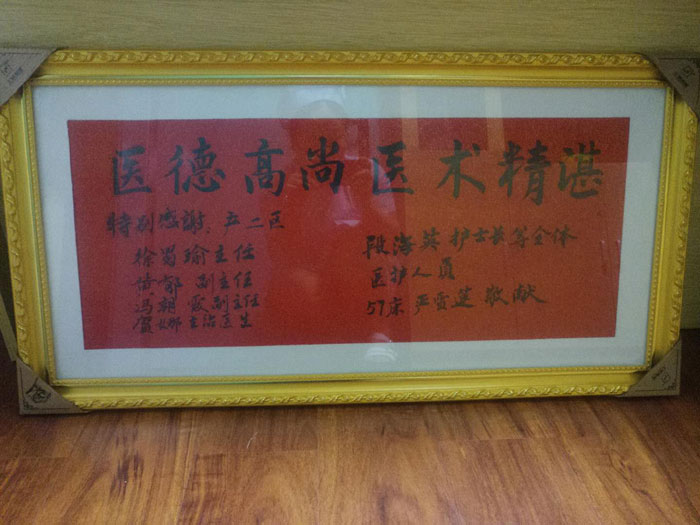 医德高尚 医术精湛
特别感谢：五二区
徐蜀瑜主任
黄郁 副主任
冯朝霞副主任
贺娜主治医生
段海英护士长等全体
医护人员
57床 严雪莲 敬献